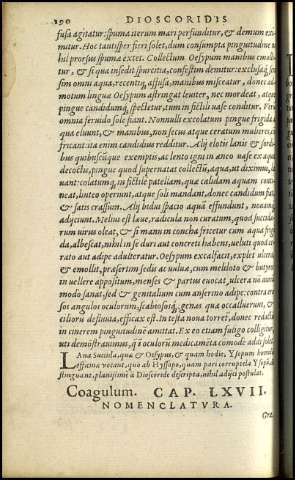 190 DIOSCORIDIS
fusa agitatur: spuma iterum mari perfunditur, & demum exi-
mitur. Hoc tantisper fieri solet, dum consumpta pinguitudine ni-
hil prorsus spumæ extet. Collectum Oesypum manibus emolli-
tur, & si qua insedit spurcitia, confestim demitur: exclusa
sim omni aqua: recentíq; affusa, manibus miscetur, donec ad-
motum linguæ Oesypum astringat leuiter, nec mordeat, atque
pingue candidumq́; spectetur, tum in fictili uase conditur. Verùm
omnia feruido sole fiant. Nonnulli excolatum pingue frigida
qua eluunt, & manibus, non secus atque ceratum mulieres, in-
fricant: ita enim candidius redditur. Alij elotis lanis & sordi-
bus quibuscúque exemptis, ac lento igni in æneo uase ex aqua
decoctis, pingue quod supernatat collectũ, aqua, ut diximus,
uant: colatumq́; in fictilem patellam, quæ calidam aquam
neat, linteo operiunt, atque soli mandant, donec candidum
& satis crassum. Alij bidui spacio aquã effundunt, nouamq́;
adijciunt. Melius est læue, radicula non curatum, quod succido-
rum uirus oleat, & si manu in concha fricetur cum aqua frigi-
da, albescat, nihil in se duri aut concreti habens, ueluti quod ce-
rato aut adipe adulteratur. Oesypum excalfacit, explet ulcera
& emollit, præsertim sedis ac uuluæ, cum meliloto & butyro:
in uellere appositum, menses & partus euocat, ulcera
modo sanat, sed & genitalium cum anserino adipe: contra ero-
sos angulos oculorum, scabososq́;, genas quæ occalluerunt, &
ciliorũ defluuia, efficax est. In testa noua torret, donec redacti
in cinerem pinguitudinẽ amittat. Ex eo etiam fuligo colligitur,
uti demõstrauimus, q̃ ĩ oculorũ medicamẽta cõmodè addi possit.
LAna Succida, quæ & Oesypus, & quam hodie, Ysopum
essima vocant, quo ab Hyssopo, quam pari corruptela
stinguant, planissimè à Dioscoride descripta, nihil adijci postulat.
Coagulum. CAP. LXVII.
NOMENCLATVRA.
Græ